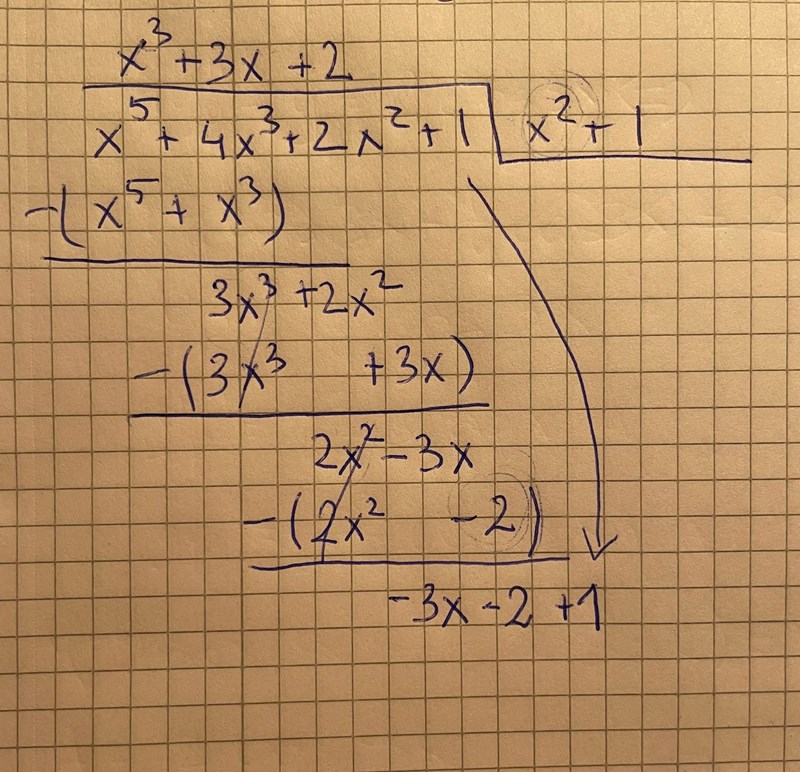 x³ + 3x + 2
x⁵ + 4x³ + 2x² + 1 x² + 1
-( x⁵ + x³ )
3x³ + 2x²
-( 3x³ + 3x )
2x² - 3x
-( 2x² - 2 )
-3x - 2 + 1